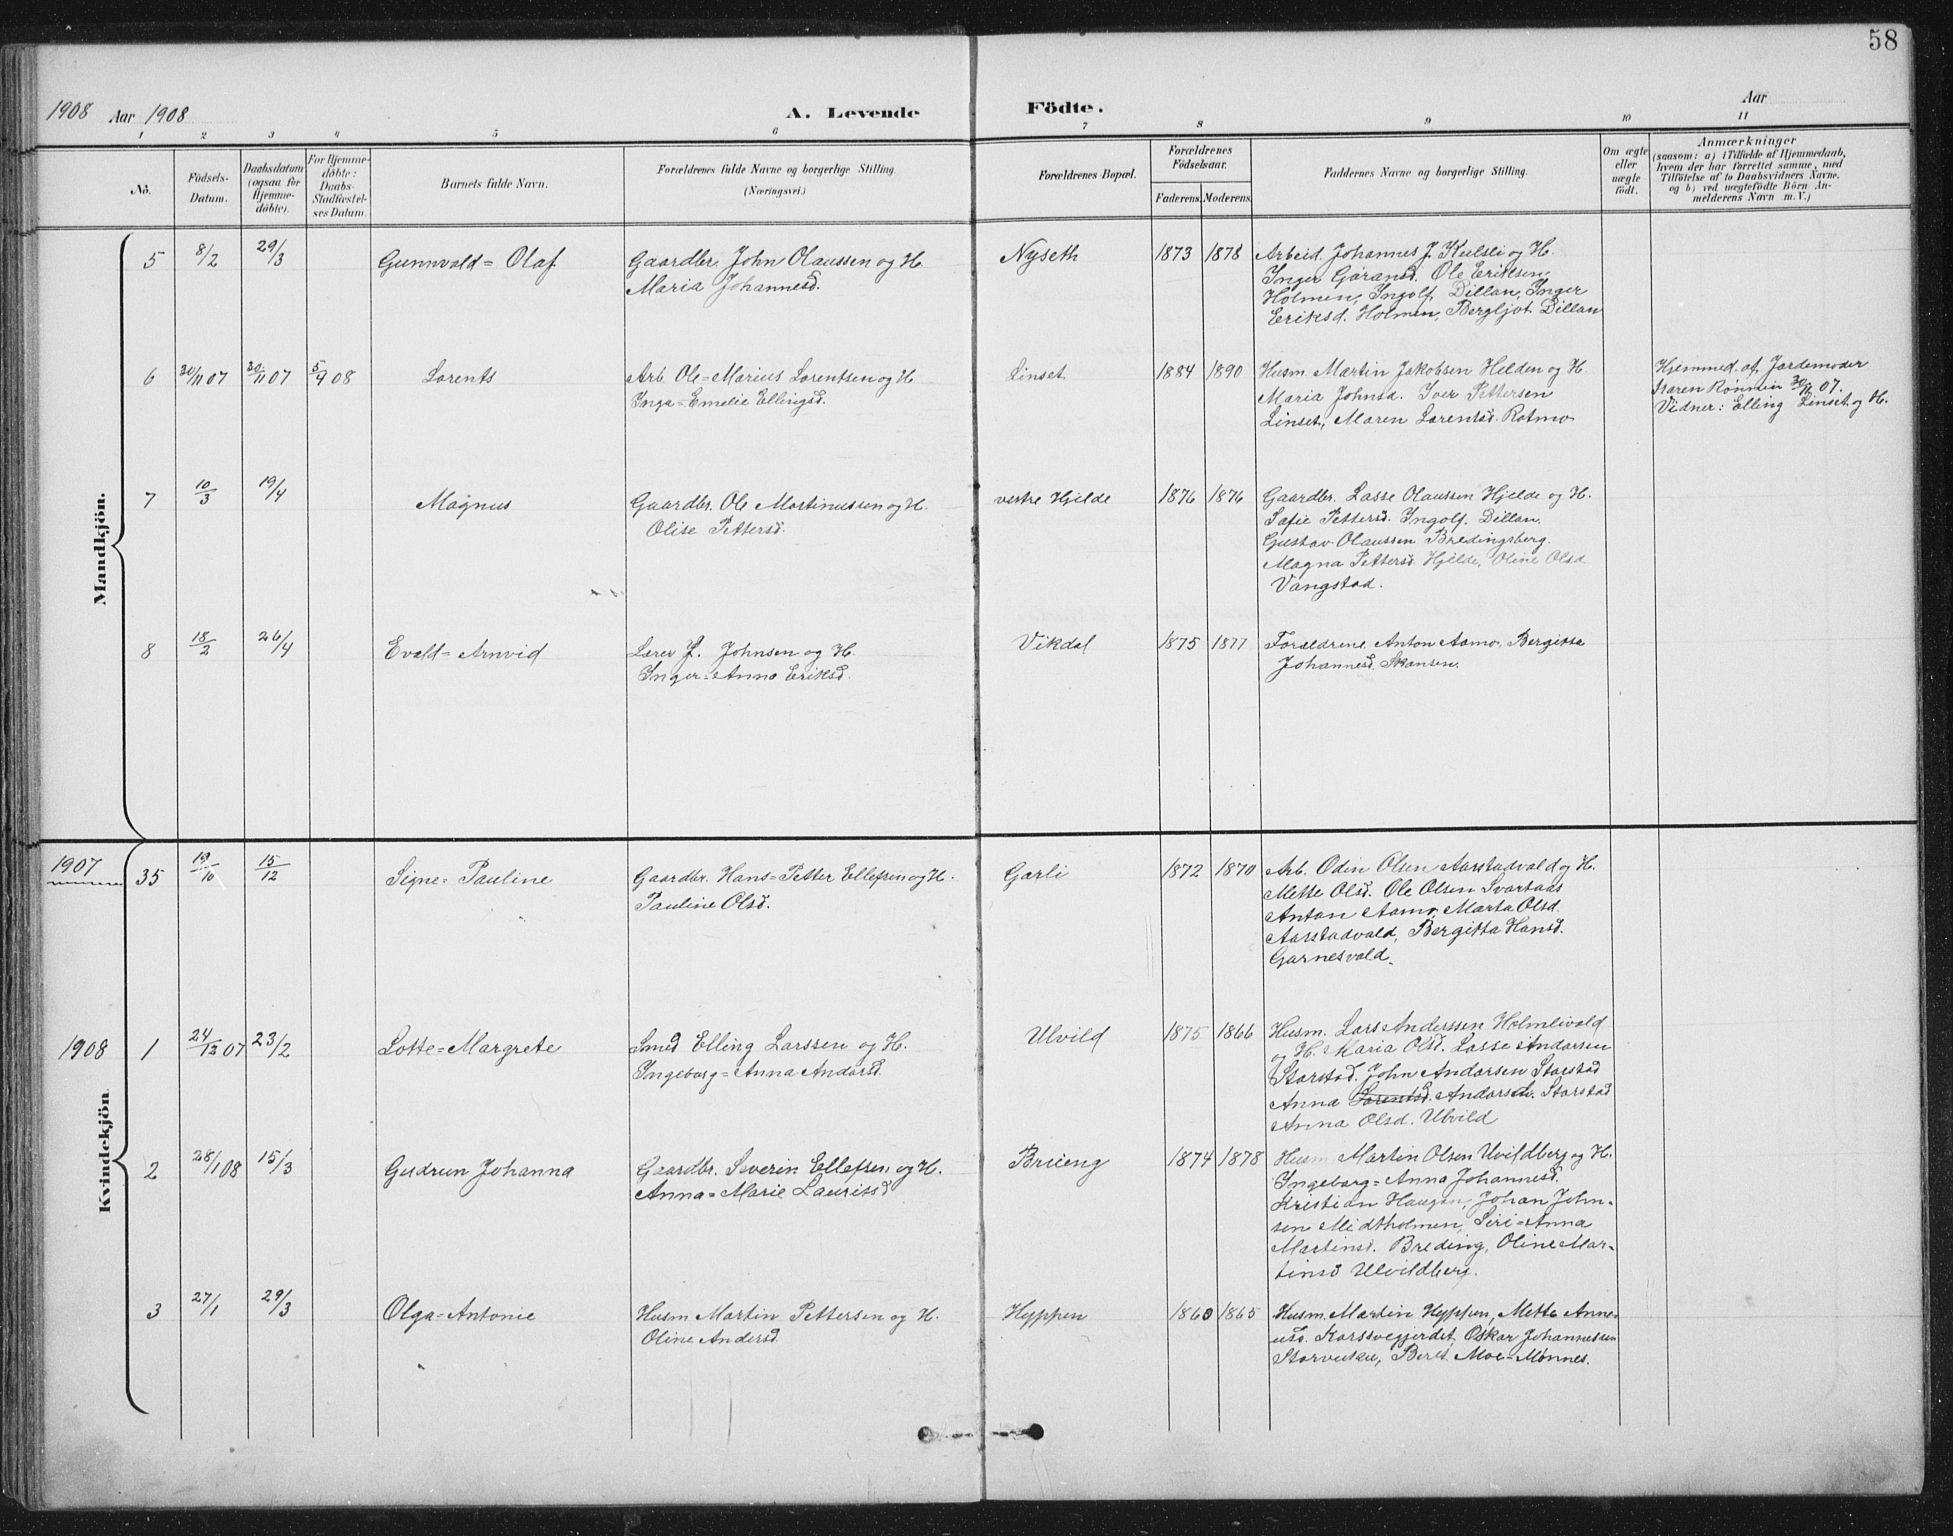 58
1908 Aar 1908
A. Levende Födte.
Aar
1 2 3 4 5 6 7 8 9 10 11
No.
Födsels-
Datum.
Daabsdatum
(ogsaa for
Hjemme-
döbte).
For Hjemme-
döbte:
Daabs-
Stadfæstel-
ses Datum.
Barnets fulde Navn.
Forældrenes fulde Navne og borgerlige Stilling.
(Næringsvei.)
Forældrenes Bopæl.
Forældrenes
Födselsaar.
Faderens. Moderens.
Faddernes Navne og borgerlige Stilling.
Om ægte
eller
uægte
födt.
Anmærkninger
(saasom: a) i Tilfælde af Hjemmedaab,
hvem der har forrettet samme, med
Tilföielse af to Daabsvidners Navne.
og b) ved uægtefödte Börn An-
melderens Navn m. V.)
Mandkjön.
5 8/2 29/3 Gunnvald= Olaf
Gaardbr. John Olaussen og H.
Maria Johannesd.
Nyseth 1873 1878
Arbeid. Johannes J. Kulsli og H.
Inger Göransd. Ole Eriksen
Holmen, Ingolf Dillan, Inger
Eriksd. Holmen, Bergljot Dillan
6 30/11 07 30/11 07 5/4 08 Lorents
Arb. Ole=Marius Lorentsen og H
Inga=Emelie Ellingsd.
Linset 1884 1890
Husm. Martin Jakobsen Helden og H.
Maria Johnsd. Iver Pettersen
Linset, Maren Lorentsd. Rotmo
Hjemmed. af Jordemoder
Karen Rönnin 30/11 07.
Vidner: Elling Linset og H.
7 10/3 19/4 Magnus
Gaardbr. Ole Martinussen og H.
Olise Pettersd.
vestre Hjelde 1876 1876
Gaardbr. Lasse Olaussen Hjelde og H.
Sofie Pettersd. Ingolf Dillan.
Gustav Olaussen Bredingsberg.
Magna Pettersd. Hjelde, Oline Olsd
Vangstad.
8 18/2 26/4 Evald=Arnvid
Lærer P. Johnsen og H.
Inger=Anna Eriksd.
Vikdal 1875 1877
Forældrene. Anton Aamo, Bergitta
Johannesd. Skansen.
Kvindekjön.
1907
35 19/10 15/12 Signe=Pauline
Gaardbr. Hans=Petter Ellefsen og H.
Pauline Olsd.
Garli 1872 1870
Arb. Odin Olsen Aarstadvald og H.
Mette Olsd. Ole Olsen Svartaas
Anton Aamo, Marta Olsd.
Aarstadvald, Bergitta Hansd.
Garnesvald.
1908
1 24/12 07 23/2 Lotte=Margrete
Smed Elling Larssen og H.
Ingeborg=Anna Andersd.
Ulvild 1875 1866
Husm. Lars Anderssen Holmlivald
og H. Maria Olsd. Lasse Andersen
Storstad. John Andersen Storstad
Anna Lorentsd. Andersen. Storstad
Anna Olsd. Ulvild
2 28/1 08 15/3 Gudrun Johanna
Gaardbr. Severin Ellefsen og H.
Anna=Marie Lauritsd
Brueng 1874 1878
Husm Martin Olsen Ulvildberg og H.
Ingeborg=Anna Johannesd.
Kristian Haugan, Johan John-
sen Midtholmen, Siri=Anna
Martinsd. Breding, Oline Mar-
tinsd Ulvildberg.
3 27/1 29/3 Olga=Antonie
Husm Martin Pettersen og H.
Oline Andersd.
Hyppen 1860 1865
Husm. Martin Hyppen, Mette Anne-
usd. Korsvegjerdet. Oskar Johannessen
Storvuku, Beret Moe=Mönnes.